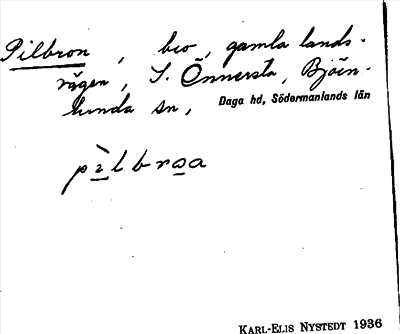 Pilbron, bro, gamla lands-
vägen, S. Önnersta, Björn-
lunda sn, Daga hd, Södermanlands län
pìlbroa
KARL-ELIS NYSTEDT 1936